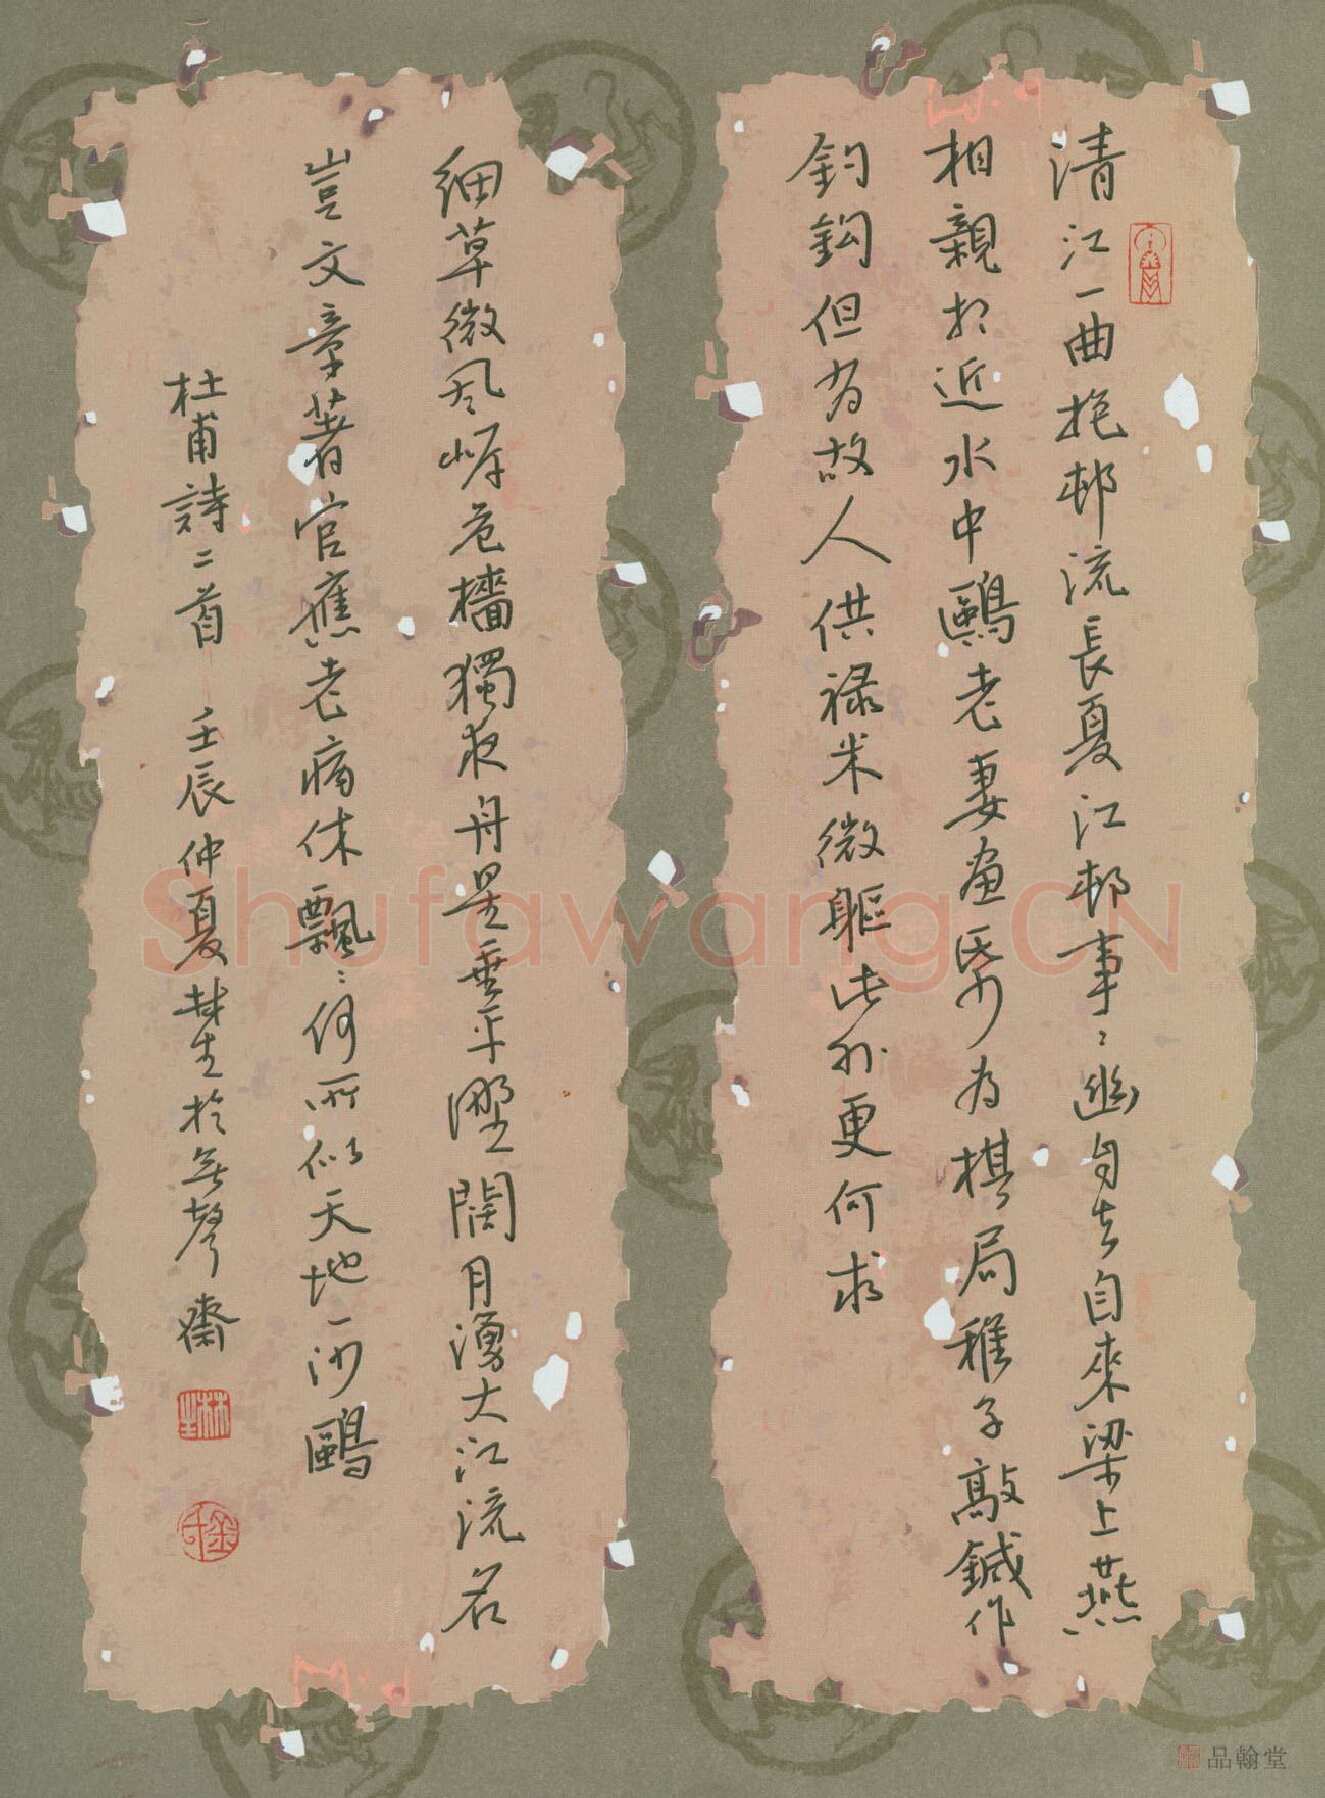 清江一曲抱邨流長夏江邨事〻幽自去自來梁上燕
相親相近水中鷗老妻畫帋為棋局稚子敲鍼作
釣鈎但有故人供祿米微軀此外更何求
細草微風岸危檣獨夜舟星垂平野闊月湧大江流名
豈文章著官應老病休飄〻何所似天地一沙鷗
杜甫詩二首 壬辰仲夏林生於無聲齋
林生
Shufawang.CN
品翰堂